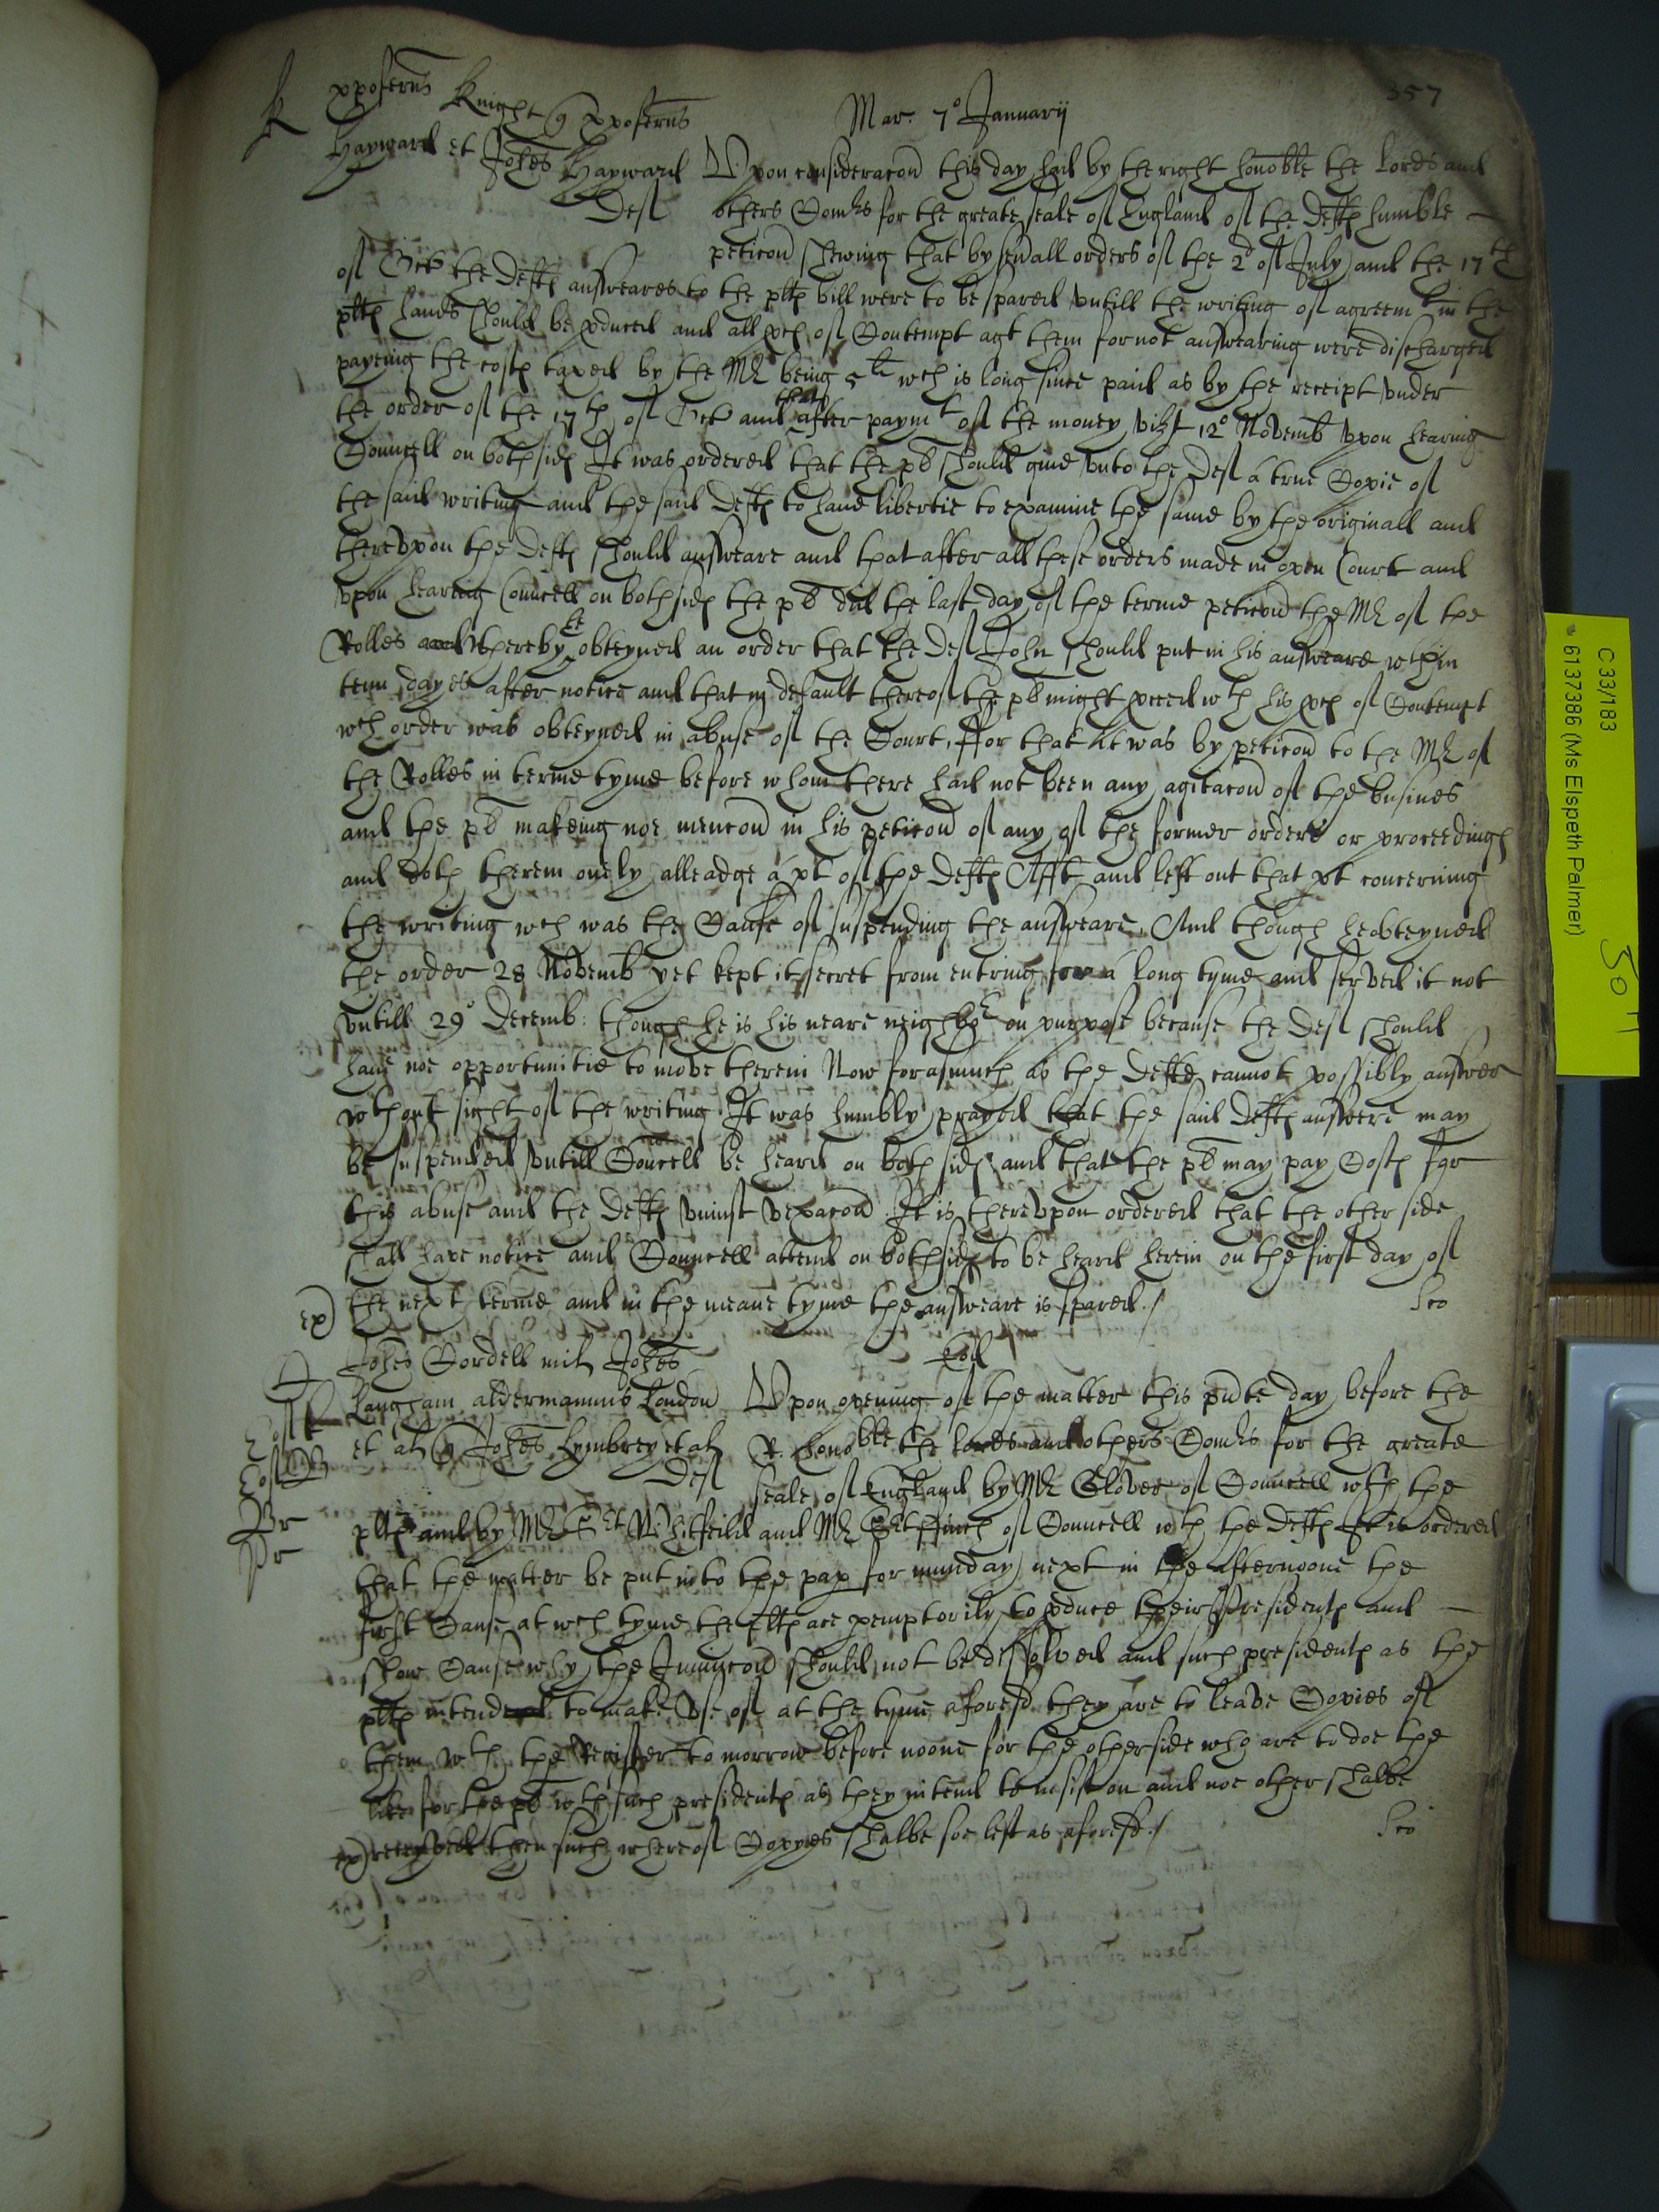 357
Mar. 7° Januarij
xpoferus Knight q xpoferus
Hayward et Johes Hayward Vpon consideracon this day had by the right honoble the Lords and
Def others Comrs for the greate seale of England of the Defts humble
peticon shewing that by seuall orders of the 2d of July and the 17th
of Octr the Defts answeares to the plts bill were to be spared vntill the writing of agreemt in the
plts hands should be pduced and all pces of Contempt agt them for not answearing were discharged
payeing the costs taxed by the Mr being 5li wch is long since paid as by the receipt vnder
the order of the 17th of Octr and that after paymt of the money vizt 12° Novemb vpon hearing
Councell on both sides It was ordered that the plt should giue vnto the Def a true Copie of
the said writing and the said Defts to haue libertie to examine the same by the originall and
therevpon the Defts should answeare and that after all these orders made in open Court and
vpon hearing Councell on both sides the plt did the last day of the terme peticon the Mr of the
Rolles and thereby he obteyned an order that the Def John should put in his answeare wthin
tenn dayes after notice and that in default thereof the plt might pceed wth his pces of Contempt
wch order was obteyned in abuse of the Court, ffor that it was by peticon to the Mr of
the Rolles in terme tyme before whom there had not been any agitacon of the busines
and the plt makeing noe mencon in his peticon of any of the former orders or proceedings
and doth therein onely alleadge a pt of the Defts Afft and left out that pt concerning
the writing wch was the Cause of suspending the answeare, And though he obteyned
the order 28 Novemb yet kept it secret from entring for a long tyme and served it not
vntill 29° Decemb: though he is his neare neighbor on purpose because the Def should
haue noe opportunitie to move therein Now forasmuch as the Defts cannot possibly answer
wthout sight of the writing It was humbly prayed that the said Defts answere may
be suspended vntill Councell be heard on both sides and that the plt may pay Costs for
this abuse and the Defts vniust vexacon. It is therevpon ordered that the other side
shall have notice and Councell attend on both sides to be heard herein on the first day of
ex) the next terme and in the meane tyme the answeare is spared./
Johes Cordell mil Johes Eod
Langham aldermannus London Vpon opening of the matter this pnte day before the
et al q Johes Lymbrey et al R. honoble the lords and others Comrs for the greate
Def seale of England by Mr Glover of Councell wth the
plts and by Mr Sert Whitfeild and Mr Sert ffinch of Councell wth the Defts It is ordered
that the matter be put into the pap for munday next in the afternoone the
first Cause at wch tyme the plts are pemptorily to pduce their Presidents and
show Cause why the Iniuncon should not be dissolved and such presidents as the
plts intend to make vse of at the tyme aforesd they are to leave Copies of
them wth the Register to morrow before noone for the other side who are to doe the
like for the plt wth such presidents as they intend to insist on and noe other shalbe
ex) received then such whereof Copyes shalbe soe left as aforesd./
C 33/183
6137386 (Ms Elspeth Palmer)